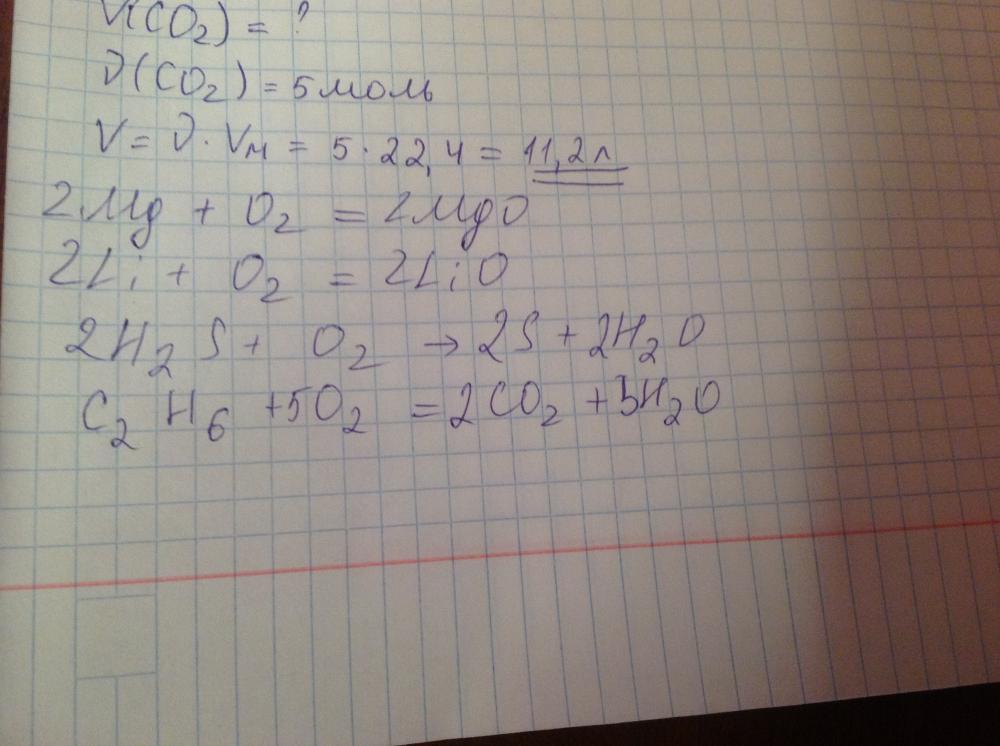 V(CO₂) = ?
ν(CO₂) = 5 моль
V = ν · Vм = 5 · 22,4 = 11,2 л
2Mg + O₂ = 2MgO
2Li + O₂ = 2LiO
2H₂S + O₂ → 2S + 2H₂O
C₂H₆ + 5O₂ = 2CO₂ + 3H₂O